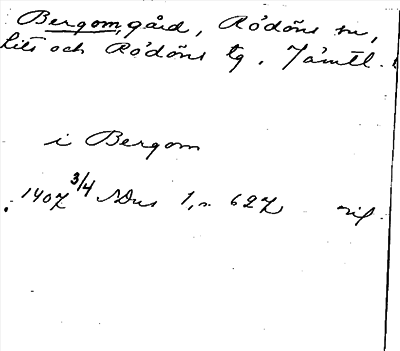 Bergom, gård, Rödöns sn,
Lits och Rödöns tg, Jämtl.
i Bergom
1407 3/4 SDns 1, n 627 rip